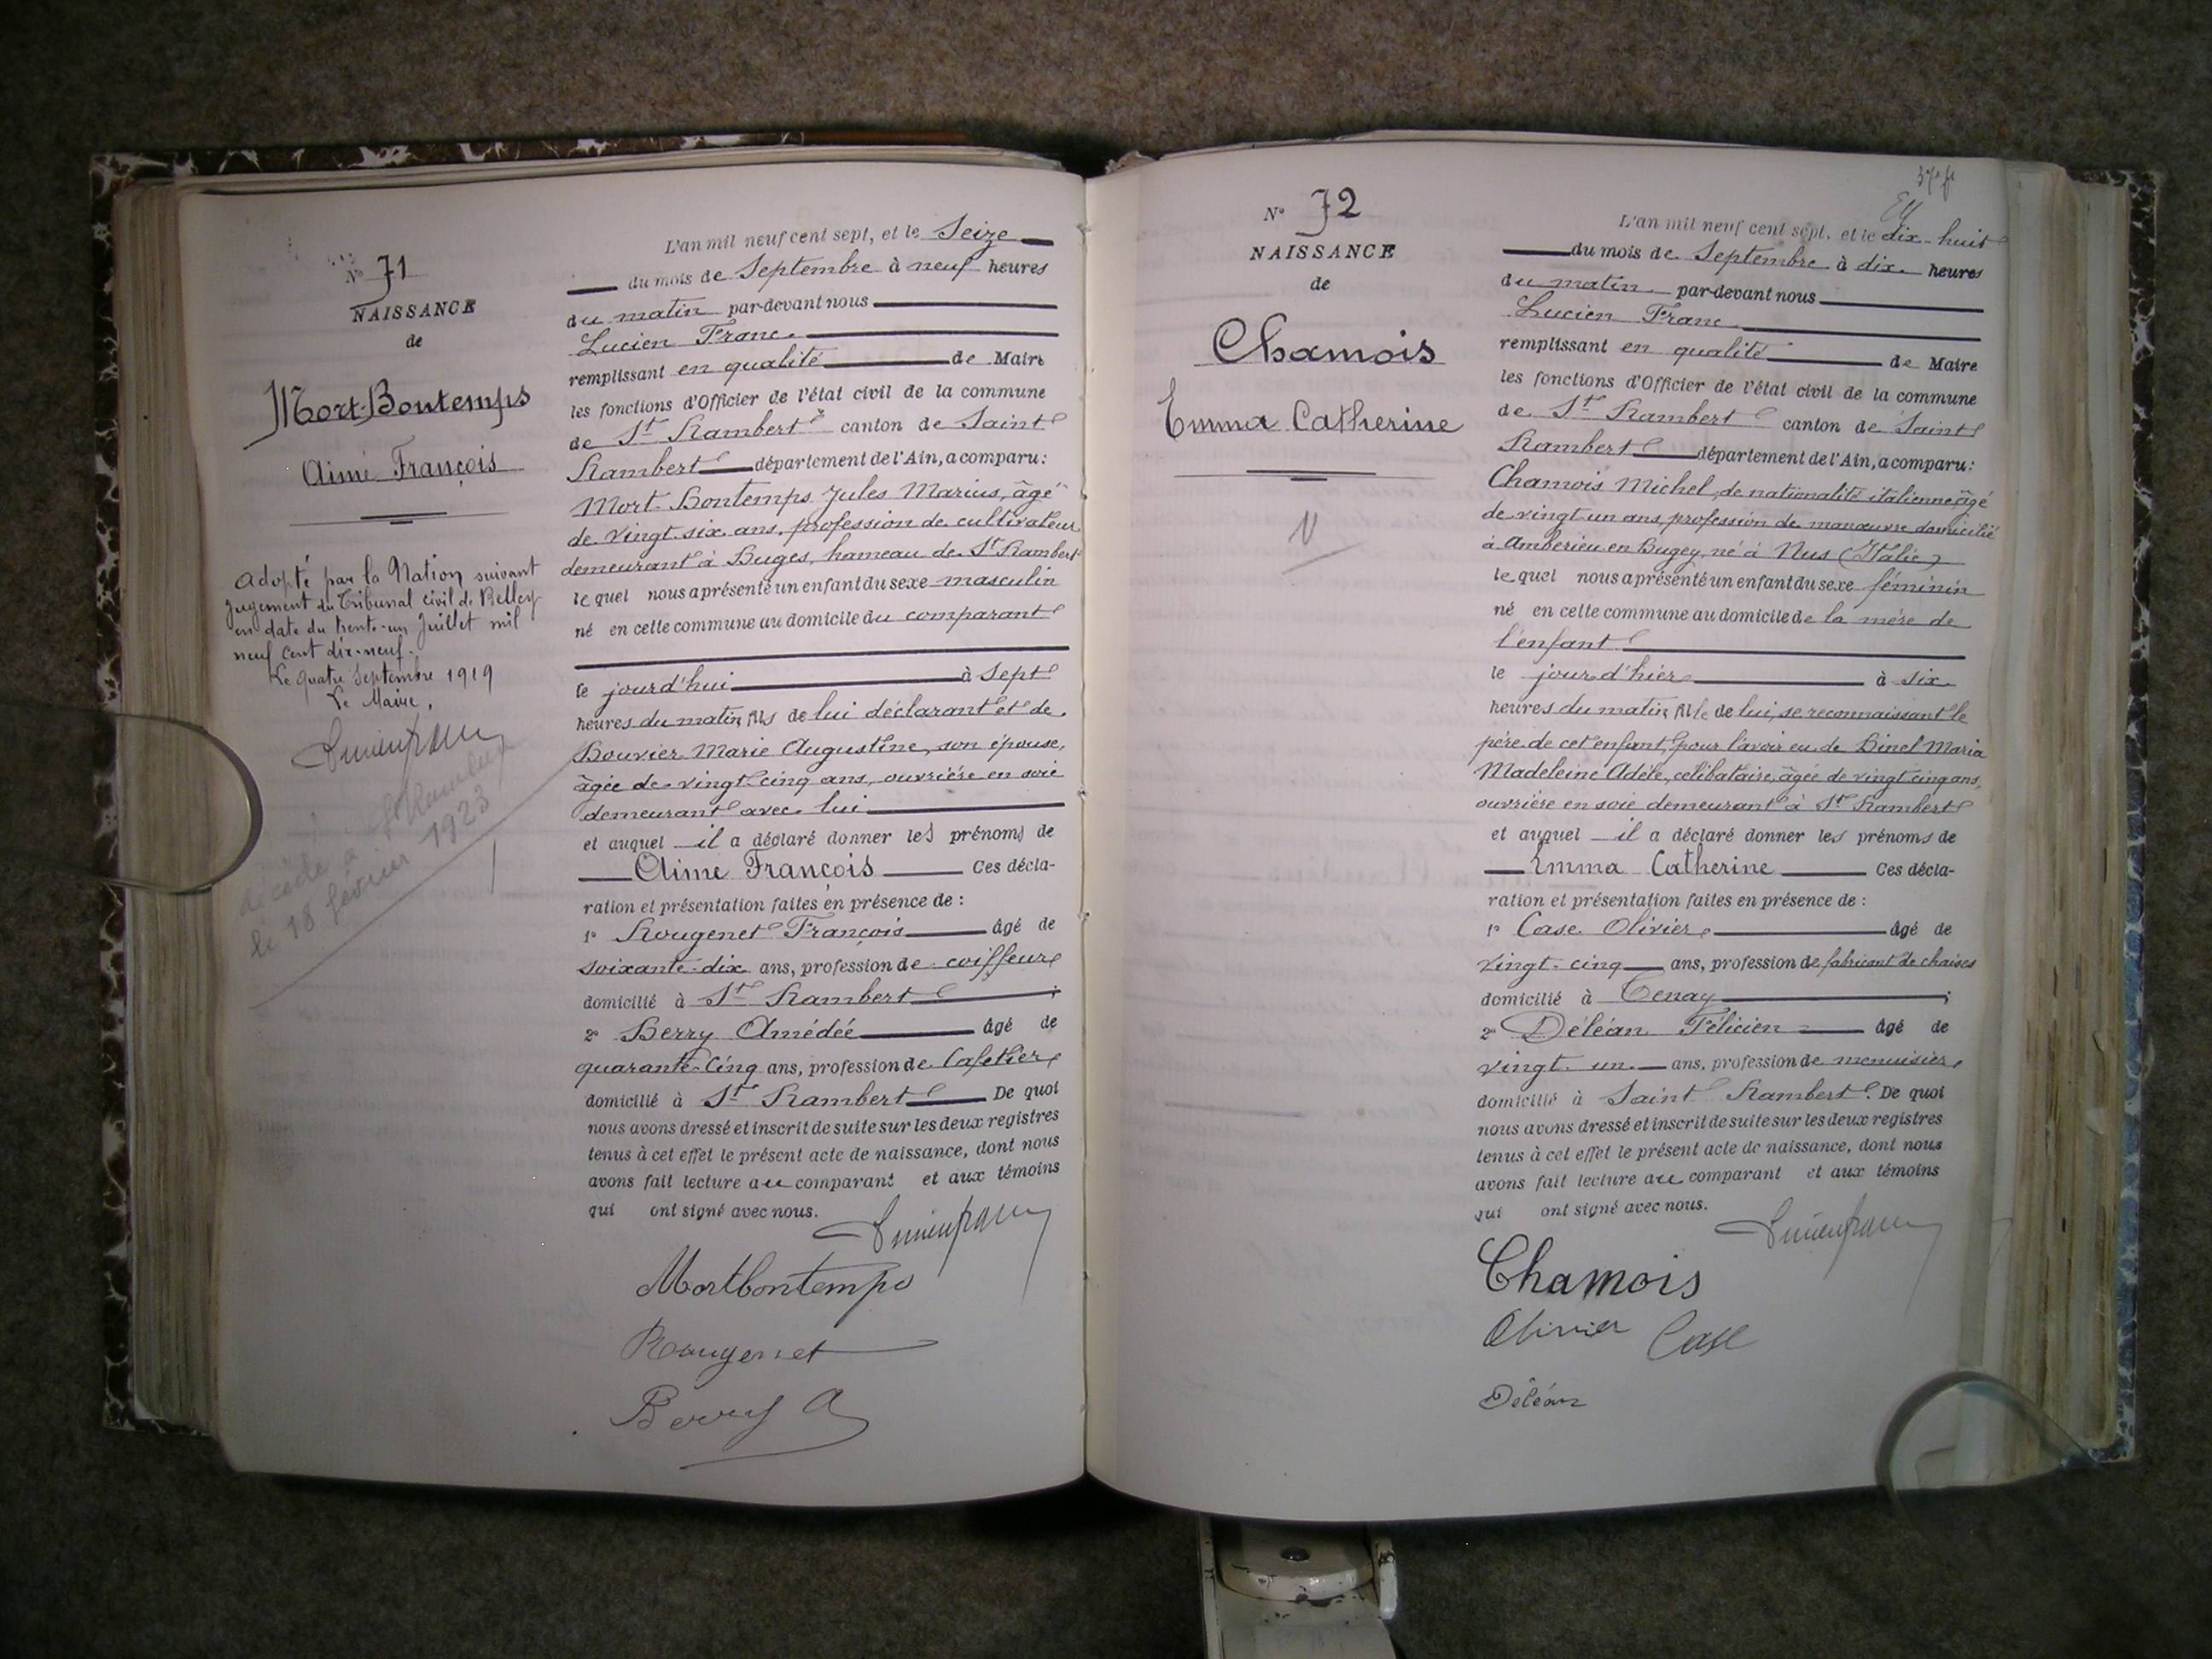 Nº 71
NAISSANCE
de
Mort-Bontemps
Aimé François
Adopté par la Nation suivant
jugement du Tribunal civil de Belley
en date du trente-un Juillet mil
neuf cent dix-neuf.
Le quatre Septembre 1919
Le Maire,
décédé à St Rambert
le 18 février 1923
L'an mil neuf cent sept, et le Seize
du mois de Septembre à neuf heures
du matin par-devant nous
Lucien Franc
remplissant en qualité de Maire
les fonctions d'Officier de l'état civil de la commune
de St Rambert canton de Saint
Rambert département de l'Ain, a comparu:
Mort-Bontemps Jules Marius, âgé
de vingt-six ans, profession de cultivateur
demeurant à Buges, hameau de St Rambert
lequel nous a présenté un enfant du sexe masculin
né en cette commune au domicile du comparant
le jourd'hui à sept
heures du matin, fils de lui déclarant et de
Bouvier Marie Augustine, son épouse,
âgée de vingt-cinq ans, ouvrière en soie
demeurant avec lui
et auquel il a déclaré donner les prénoms de
Aimé François Ces décla-
ration et présentation faites en présence de :
1º Rougenet François âgé de
soixante-dix ans, profession de coiffeur
domicilié à St Rambert ;
2º Berry Amédéé âgé de
quarante-cinq ans, profession de Cafetier
domicilié à St Rambert De quoi
nous avons dressé et inscrit de suite sur les deux registres
tenus à cet effet le présent acte de naissance, dont nous
avons fait lecture au comparant et aux témoins
qui ont signé avec nous.
Mortbontemps
Rougenet
Berry A
Nº 72
NAISSANCE
de
Chamois
Emma Catherine
L'an mil neuf cent sept, et le dix-huit
du mois de Septembre à dix heures
du matin par-devant nous
Lucien Franc
remplissant en qualité de Maire
les fonctions d'Officier de l'état civil de la commune
de St Rambert canton de Saint
Rambert département de l'Ain, a comparu:
Chamois Michel, de nationalité italienne âgé
de vingt-un ans, profession de manœuvre domicilié
à Ambérieu en Bugey, né à Nus (Italie)
lequel nous a présenté un enfant du sexe féminin
né en cette commune au domicile de la mère de
l'enfant
le jour d'hier à six
heures du matin, fille de lui, se reconnaissant le
père de cet enfant, pour l'avoir eu de Binel Maria
Madeleine Adèle, célibataire, âgée de vingt cinq ans,
ouvrière en soie demeurant à St Rambert
et auquel il a déclaré donner les prénoms de
Emma Catherine Ces décla-
ration et présentation faites en présence de :
1º Case Olivier âgé de
vingt-cinq ans, profession de fabricant de chaises
domicilié à Tenay ;
2º Déléan Félicien âgé de
vingt-un ans, profession de menuisier
domicilié à Saint Rambert. De quoi
nous avons dressé et inscrit de suite sur les deux registres
tenus à cet effet le présent acte de naissance, dont nous
avons fait lecture au comparant et aux témoins
qui ont signé avec nous.
Chamois
Olivier Case
Déléan